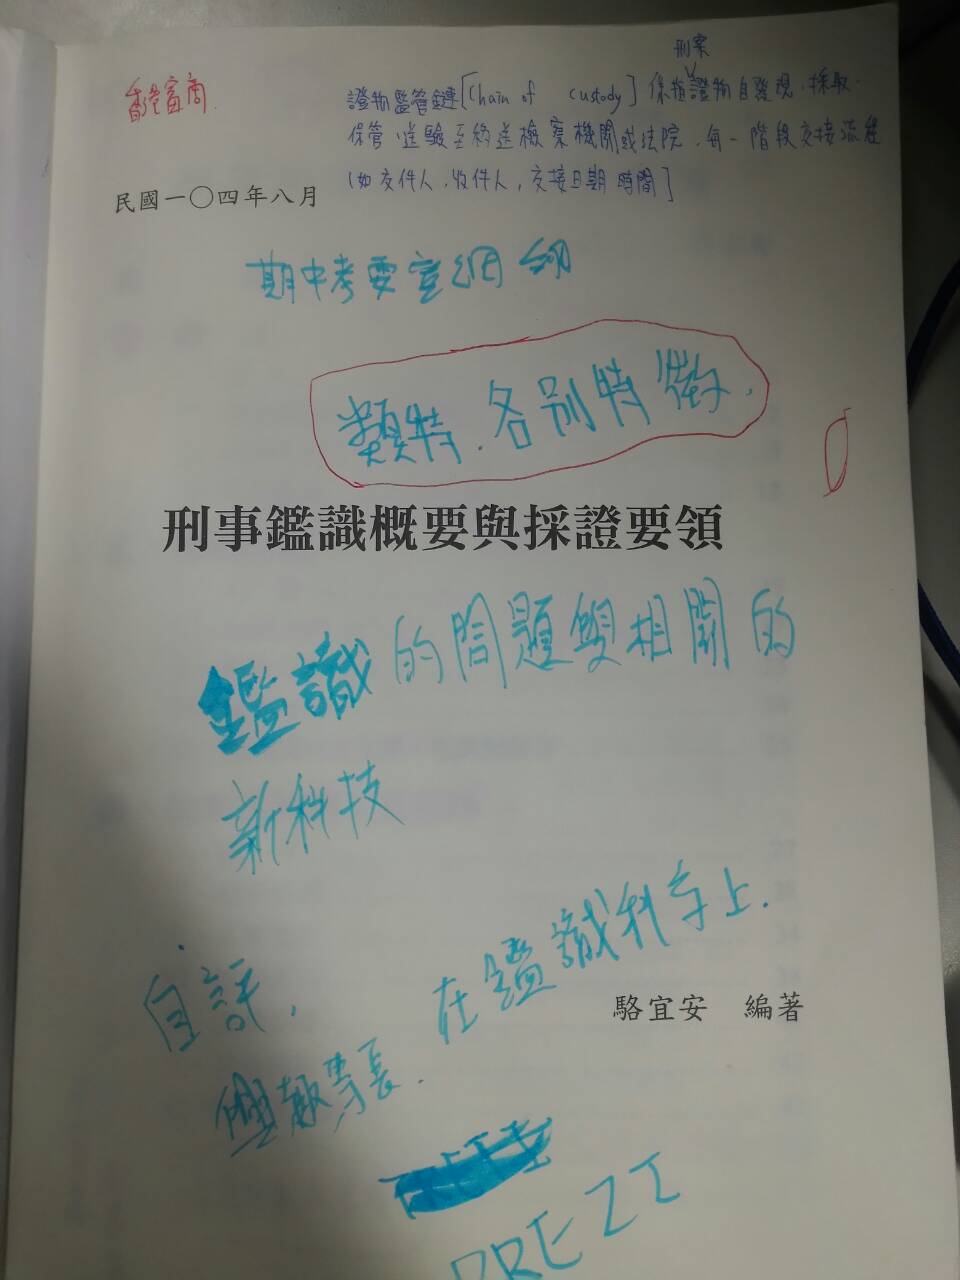 香港富商
刑案
證物監管鏈[Chain of custody]係指證物自發現、採取、
保管、送驗至移送檢察機關或法院,每一階段交接流程
(如交件人、收件人,交接日期時間]
民國一〇四年八月
期中考要宣網
類特.各別特徵,
刑事鑑識概要與採證要領
鑑識的問題與相關的
新科技
自評,
在鑑識科学上.
駱宜安 編著
興趣專長.
PREZI